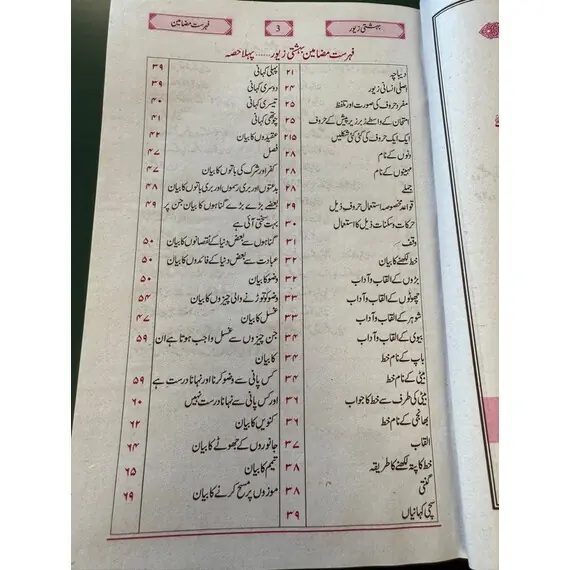 بہشتی زیور
3
فہرست مضامین
فہرست مضامین بہشتی زیور...... پہلا حصہ
دیباچہ ۲۱
اصلی انسانی زیور ۲۴
مفرد حروف کی صورت اور تلفظ ۲۵
امتحان کے واسطے زبر زیر پیش کے حروف ۲۵
ایک ایک حروف کی کئی کئی شکلیں ۲۱۵
دنوں کے نام ۲۸
مہینوں کے نام ۲۸
جملے ۲۸
قواعد مخصوصہ استعمال حروف ذیل ۲۹
حرکات و سکنات ذیل کا استعمال ۳۰
وقف ۳۱
خط لکھنے کا بیان ۳۲
بڑوں کے القاب و آداب ۳۲
چھوٹوں کے القاب و آداب ۳۳
شوہر کے القاب و آداب ۳۳
بیوی کے القاب و آداب ۳۴
باپ کے نام خط ۳۴
بیٹی کے نام خط ۳۴
بیٹی کی طرف سے خط کا جواب ۳۶
بھانجی کے نام خط ۳۶
القاب ۳۷
خط کا پتہ لکھنے کا طریقہ ۳۸
گنتی ۳۸
سچی کہانیاں ۳۹
پہلی کہانی ۳۹
دوسری کہانی ۳۹
تیسری کہانی ۴۰
چوتھی کہانی ۴۱
عقیدوں کا بیان ۴۲
فصل ۴۷
کفر اور شرک کی باتوں کا بیان ۴۷
بدعتوں اور بری رسموں اور بری باتوں کا بیان ۴۸
بعضے بڑے بڑے گناہوں کا بیان جن پر ۴۹
بہت سختی آئی ہے
گناہوں سے بعض دنیا کے نقصانوں کا بیان ۵۰
عبادت سے بعض دنیا کے فائدوں کا بیان ۵۰
وضو کا بیان ۵۰
وضو کو توڑنے والی چیزوں کا بیان ۵۴
غسل کا بیان ۴۷
جن چیزوں سے غسل واجب ہوتا ہے ان ۵۹
کا بیان
کس پانی سے وضو کرنا اور نہانا درست ہے ۵۹
اور کس پانی سے نہانا درست نہیں ۶۰
کنویں کا بیان ۶۲
جانوروں کے جھوٹے کا بیان ۶۴
تیمم کا بیان ۶۵
موزوں پر مسح کرنے کا بیان ۶۹